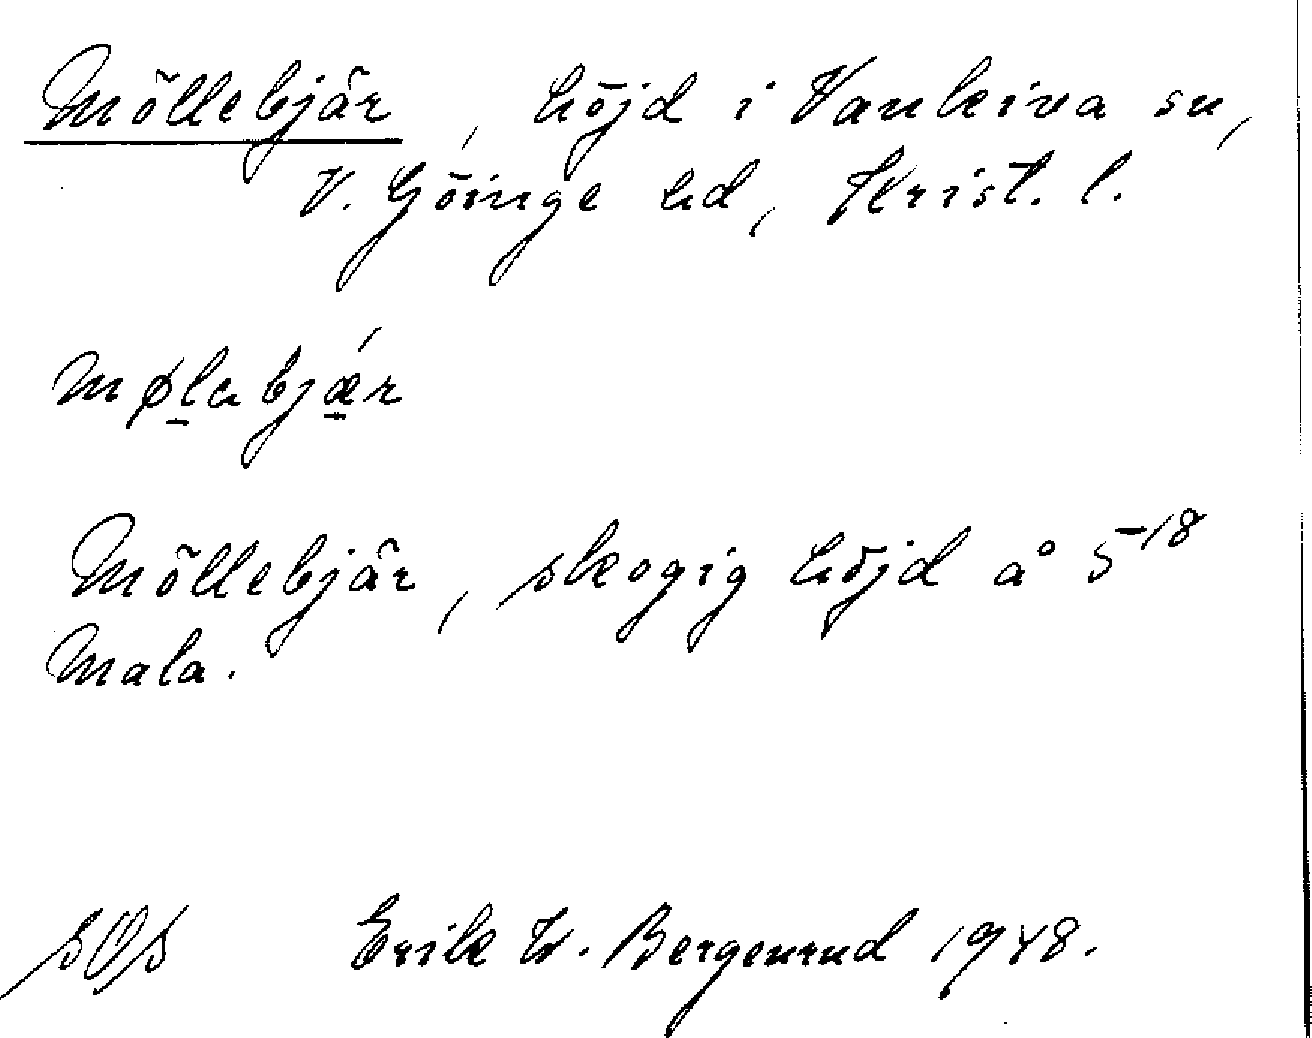 Möllebjär, höjd i Vankiva sn,
V. Göinge hd, Krist. l.
møl̲abjǽ̲r
Möllebjär, skogig höjd å 5-18
Mala.
SOS Erik W. Bergenrud 1948.